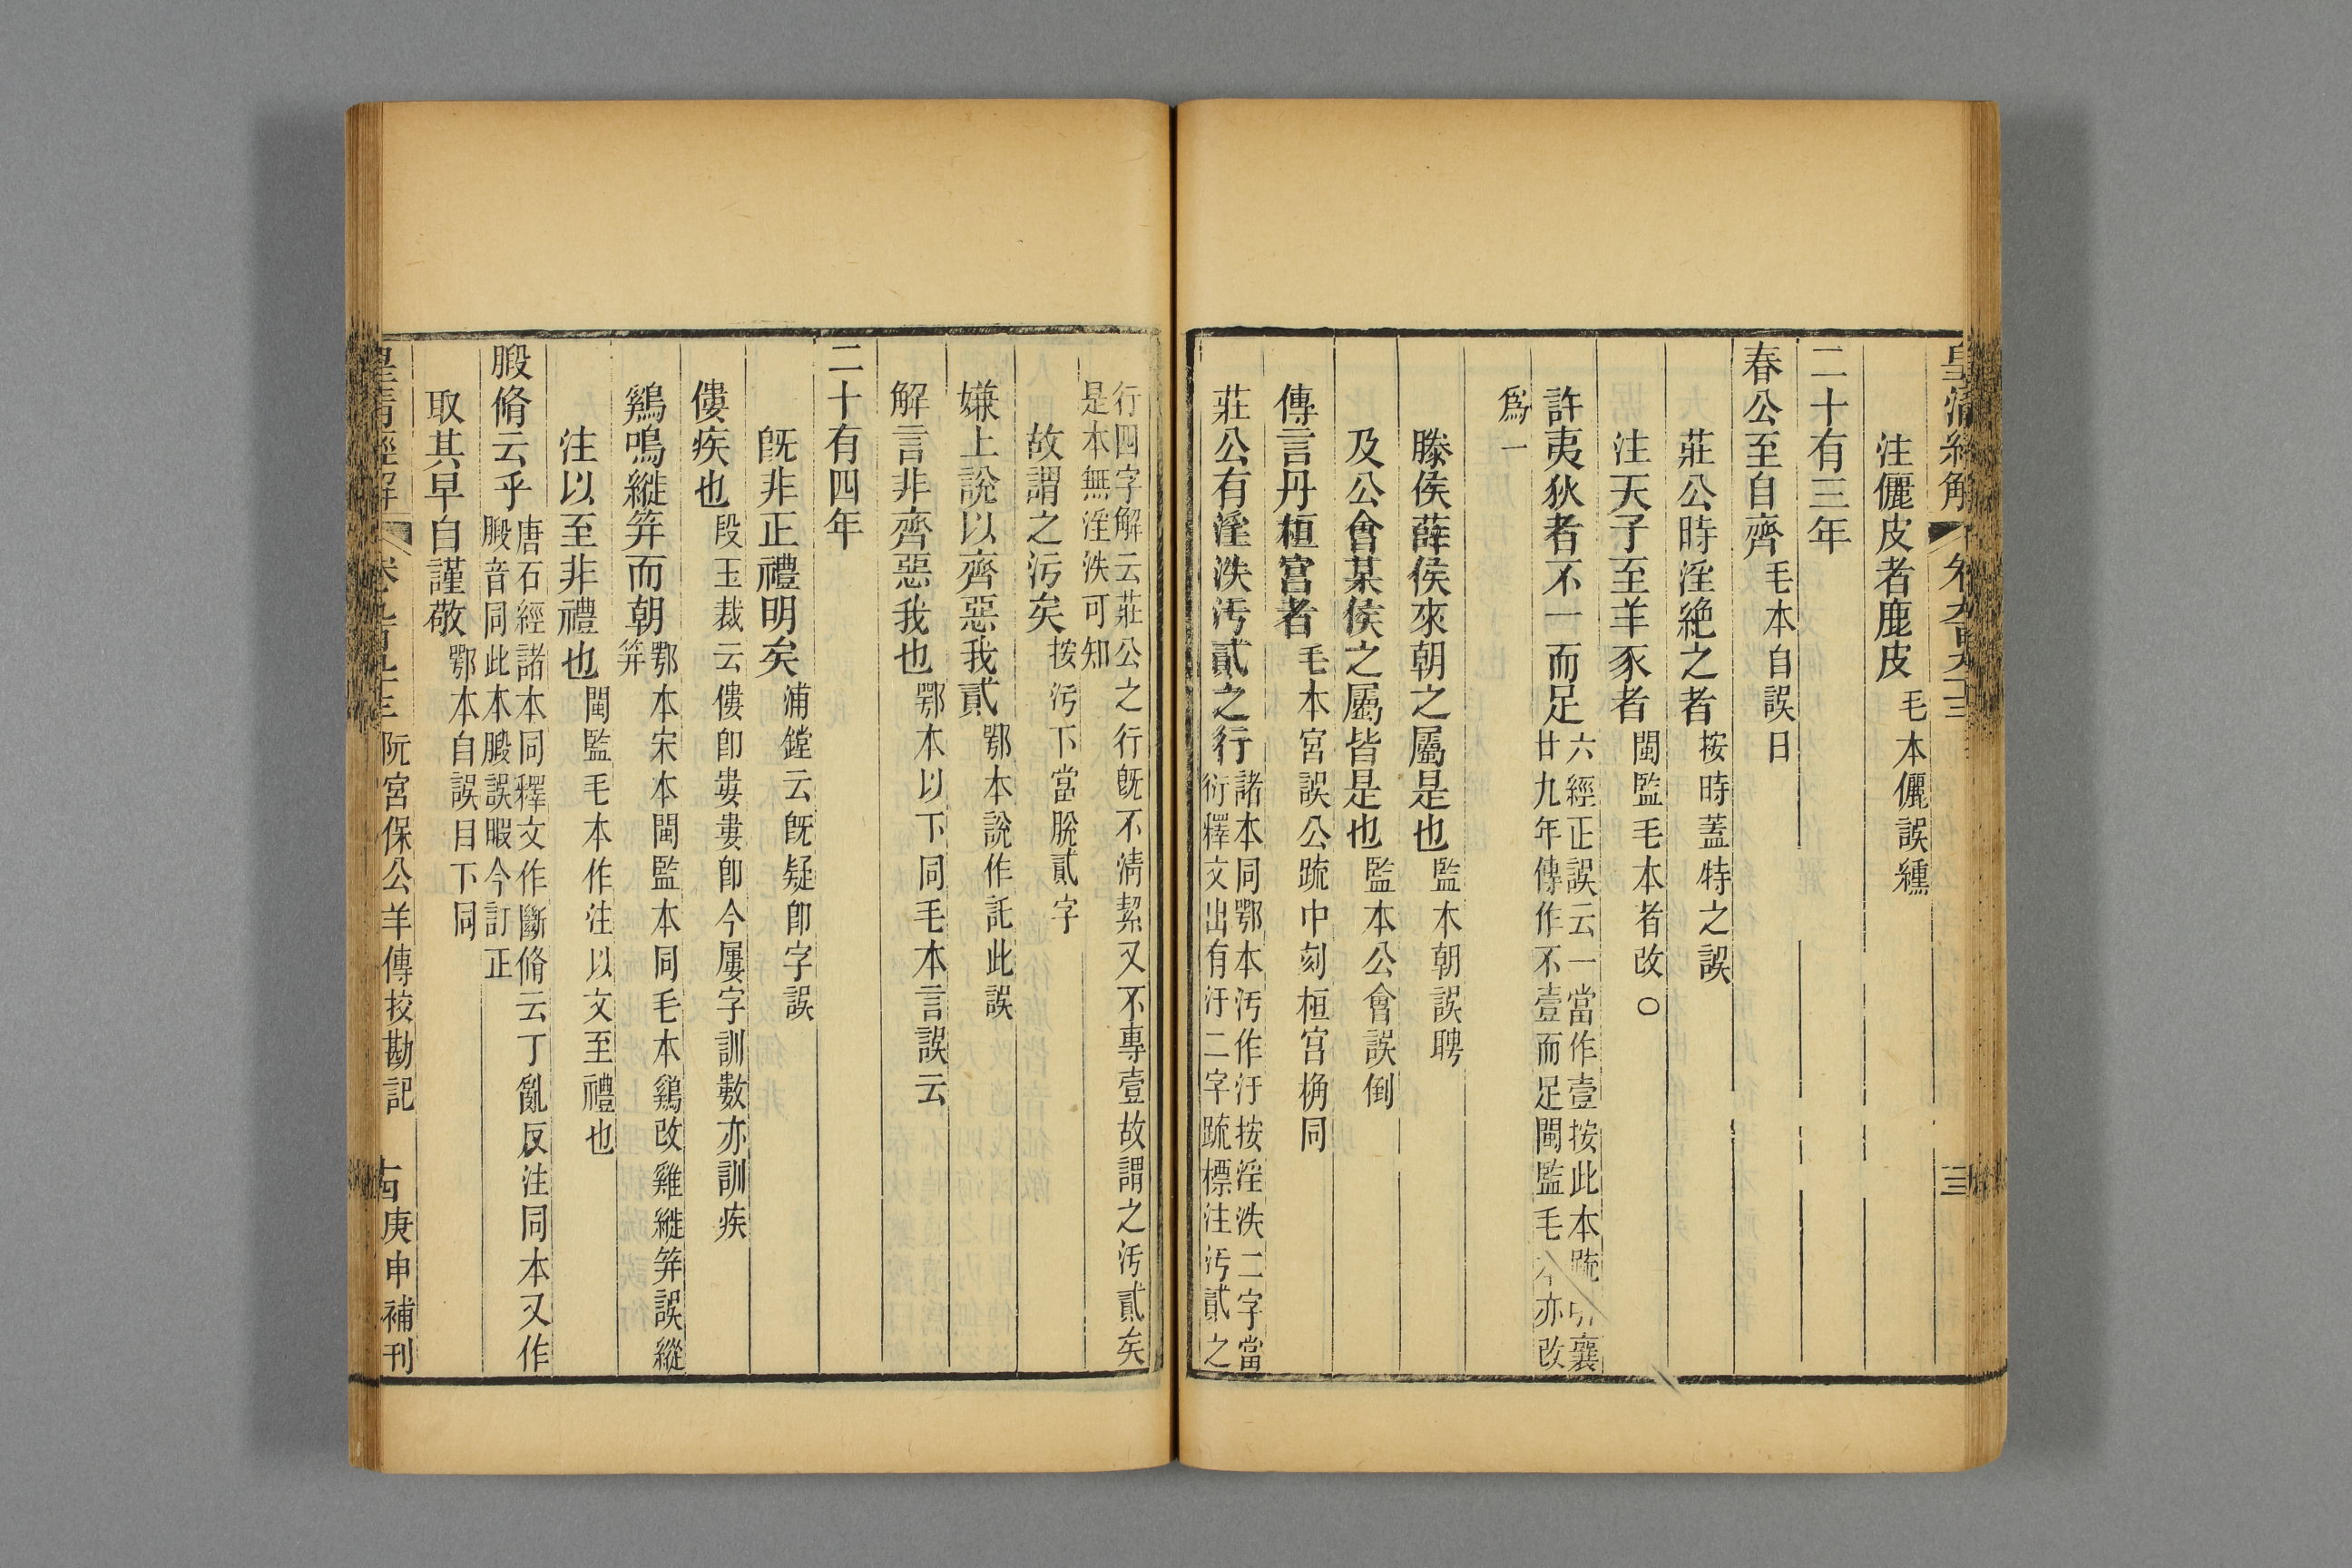 皇清經解 卷九百九十三 三
注儷皮者鹿皮毛本儷誤纁
二十有三年
春公至自齊毛本自誤日
莊公時淫絶之者按時蓋特之誤
注天子至羊豕者閩監毛本者改○
許夷狄者不一而足六經正誤云一當作壹按此本疏引襄
廿九年傳作不壹而足閩監毛本亦改
爲一
滕侯薛侯來朝之屬是也監本朝誤聘
及公會某侯之屬皆是也監本公會誤倒
傳言丹桓宮者毛本宮誤公疏中刻桓宮桷同
莊公有淫泆汚貳之行諸本同鄂本汚作汙按淫泆二字當
衍釋文出有汙二字疏標注汚貳之
行四字解云莊公之行旣不淸絜又不專壹故謂之汚貳矣
是本無淫泆可知
故謂之汚矣按汚下當脫貳字
嫌上說以齊惡我貳鄂本說作託此誤
解言非齊惡我也鄂本以下同毛本言誤云
二十有四年
旣非正禮明矣浦鏜云旣疑卽字誤
僂疾也段玉裁云僂卽婁婁卽今屢字訓數亦訓疾
鷄鳴縰笄而朝鄂本宋本閩監本同毛本鷄改雞縰笄誤縱
笄
注以至非禮也閩監毛本作注以文至禮也
腶脩云乎唐石經諸本同釋文作斷脩云丁亂反注同本又作
腶音同此本腶誤暇今訂正
取其早自謹敬鄂本自誤目下同
皇淸經解 卷九百九十三 阮宮保公羊傳挍勘記 古 庚申補刊